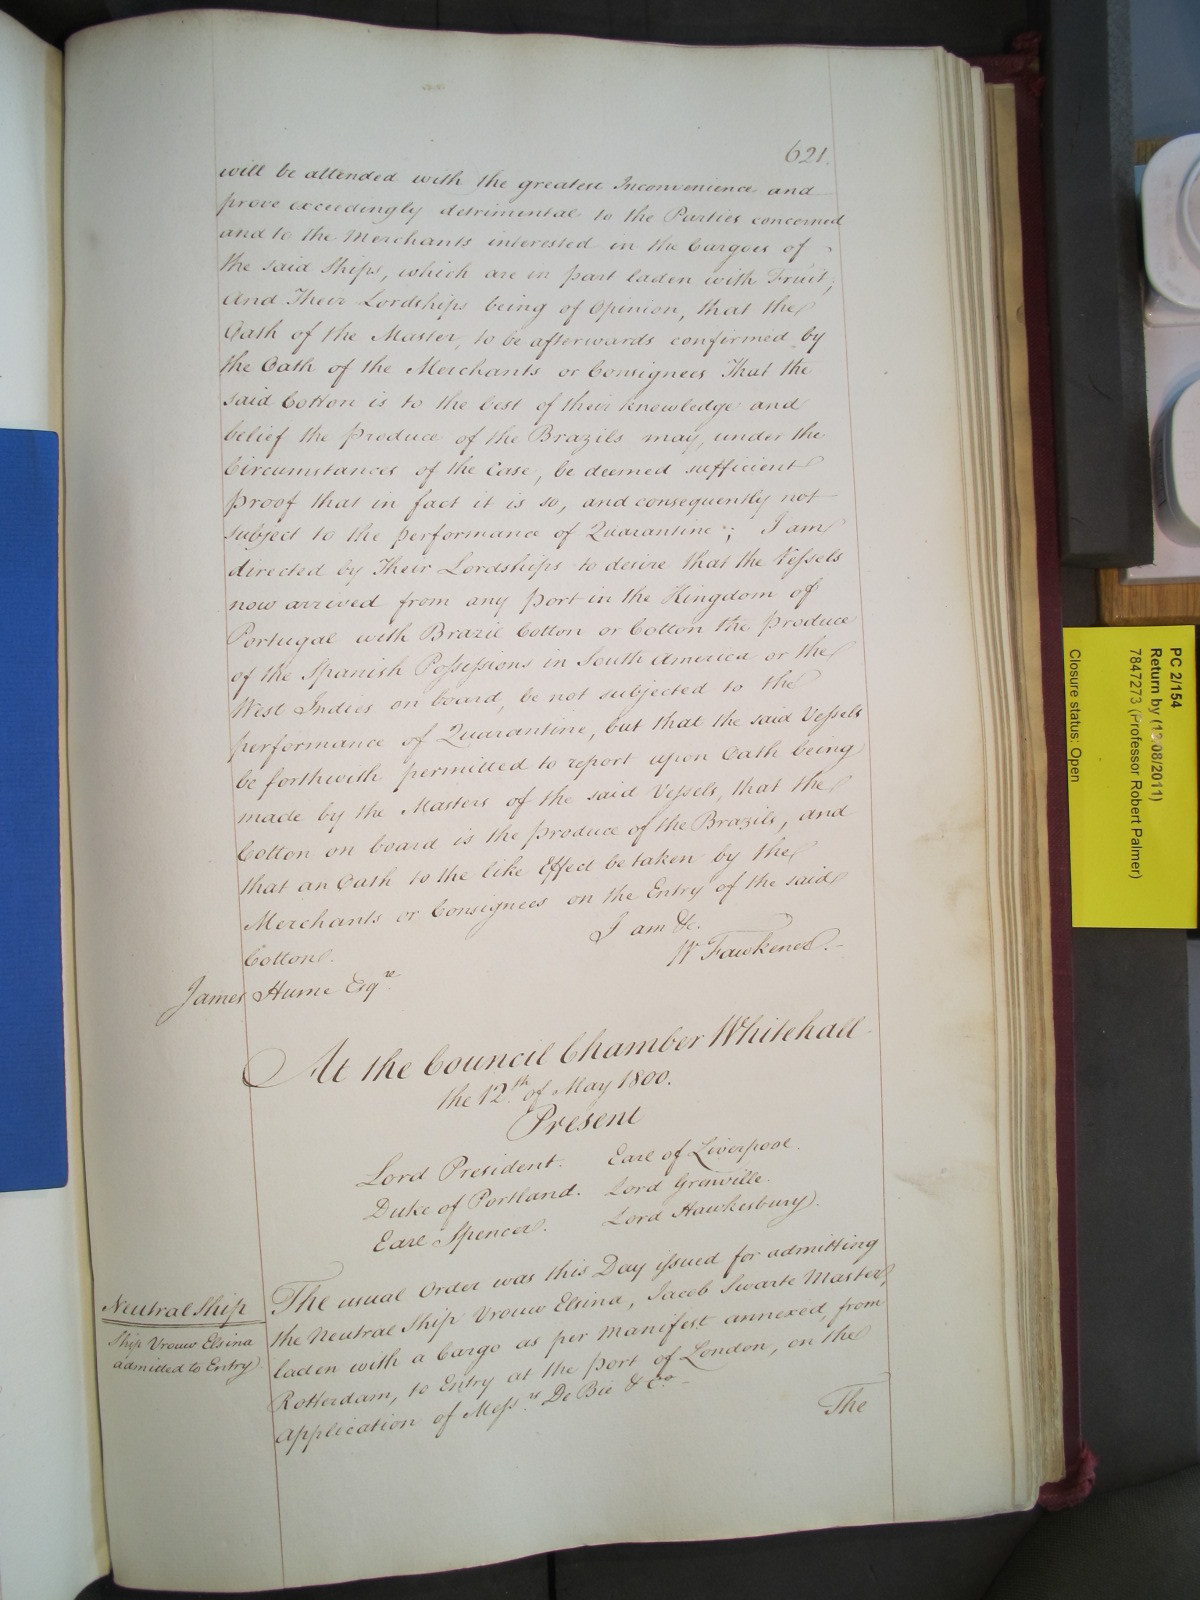 621.
will be attended with the greatest Inconvenience and
prove exceedingly detrimental to the Parties concerned
and to the Merchants interested in the Cargoes of
the said Ships, which are in part laden with Fruit;
And Their Lordships being of Opinion, that the
Oath of the Master, to be afterwards confirmed by
the Oath of the Merchants or Consignees That the
said Cotton is to the best of their knowledge and
belief the Produce of the Brazils may, under the
Circumstances of the Case, be deemed sufficient
Proof that in fact it is so, and consequently not
subject to the performance of Quarantine; I am
directed by Their Lordships to desire that the Vessels
now arrived from any Port in the Kingdom of
Portugal with Brazil Cotton or Cotton the Produce
of the Spanish Possessions in South America or the
West Indies on board, be not subjected to the
performance of Quarantine, but that the said Vessels
be forthwith permitted to report upon Oath being
made by the Masters of the said Vessels, that the
Cotton on board is the Produce of the Brazils, and
that an Oath to the like Effect be taken by the
Merchants or Consignees on the Entry of the said
Cotton.
I am &c.
W Fawkener.
James Hume Esqre
At the Council Chamber Whitehall
the 12th of May 1800.
Present
Lord President. Earl of Liverpool.
Duke of Portland. Lord Grenville.
Earl Spencer. Lord Hawkesbury.
Neutral Ship
Ship Vrouw Elsina
admitted to Entry
The usual Order was this Day issued for admitting
the Neutral Ship Vrouw Elsina, Jacob Swarte Master,
laden with a Cargo as per Manifest annexed, from
Rotterdam, to Entry at the Port of London, on the
Application of Messrs De Bie & Co
The
PC 2/154
Return by (13/08/2011)
7847273 (Professor Robert Palmer)
Closure status: Open